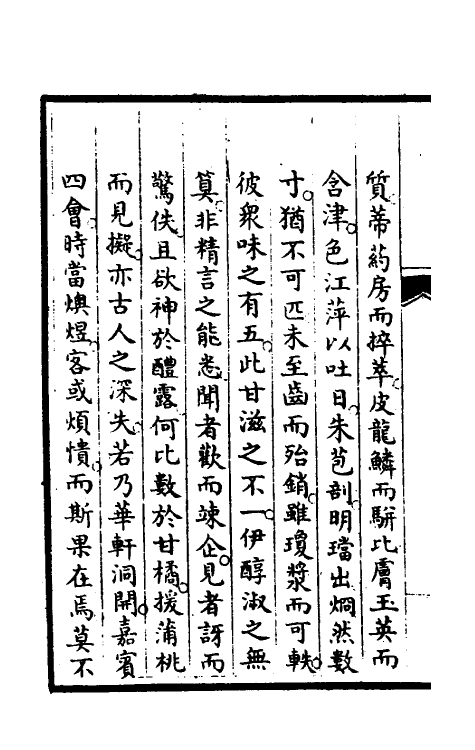 質蒂葯房而捽萃皮龍鱗而駢比膚玉英而
含津色江萍以吐日朱苞剖明璫出烱然數
寸猶不可匹未至齒而殆銷雖瓊漿而可軼
彼衆味之有五此甘滋之不一伊醇淑之無
算非精言之能悉聞者歡而竦企見者訝而
驚佚且欲神於醴露何比數於甘橘援蒲桃
而見擬亦古人之深失若乃華軒洞開嘉賓
四會時當燠煜客或煩憒而斯果在焉莫不